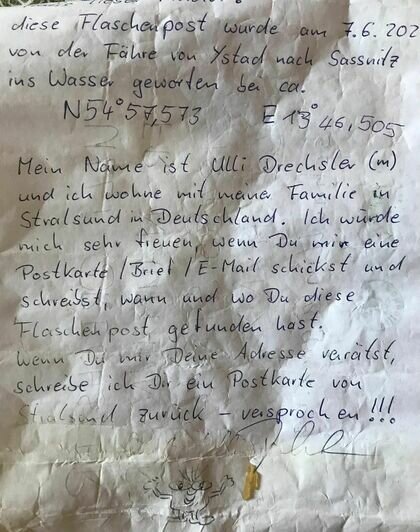 diese Flaschenpost wurde am 7.6.202
von der Fähre von Ystad nach Sassnitz
ins Wasser geworfen bei ca.
N54°57,573 E 13°46,505
Mein Name ist Ulli Drechsler (m)
und ich wohne mit meiner Familie in
Stralsund in Deutschland. Ich würde
mich sehr freuen, wenn Du mir eine
Postkarte/Brief/E-Mail schickst und
schreibst, wann und wo Du diese
Flaschenpost gefunden hast.
Wenn Du mir Deine Adresse verrätst,
schreibe ich Dir ein Postkarte von
Stralsund zurück - versprochen!!!